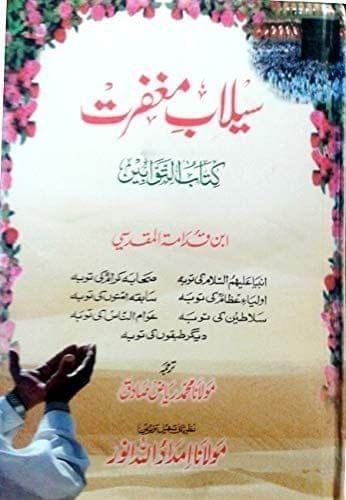 سیلابِ مغفرت
کتابُ التوّابین
ابن قدامۃ المقدسی
انبیاء علیہم السلام کی توبہ صحابہ کرامؓ کی توبہ
اولیاءِ عظامؒ کی توبہ سابقہ امتوں کی توبہ
سلاطین کی توبہ عوام الناس کی توبہ
دیگر طبقوں کی توبہ
ترجمہ
مولانا محمد ریاض صادق
مولانا امداد اللہ انور